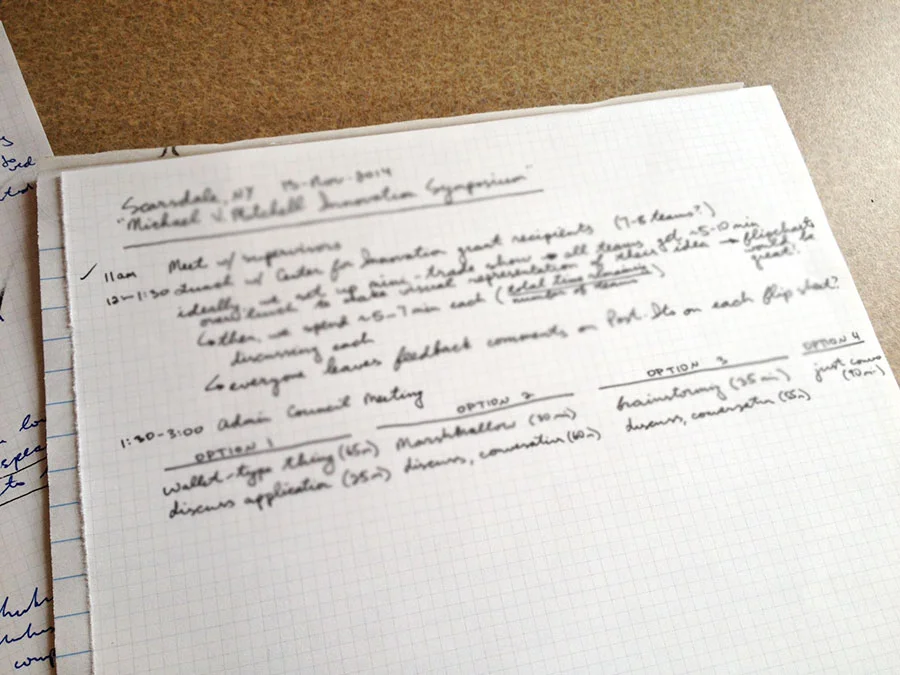 Scarsdale, NY 15-Nov-2014
"Michael V. Mitchell Innovation Symposium"
✓ 11am Meet w/ supervisors
12-1:30 Lunch w/ Center for Innovation grant recipients (7-8 teams?)
ideally, we set up mini-trade show → all teams get ~5-10 min
over lunch to make visual representation of their idea → flipcharts
would be
great!
↳ then, we spend ~5-7 min each (total time remaining
number of teams)
discussing each
↳ everyone leaves feedback comments on Post-Its on each flip sheet?
1:30-3:00 Admin Council Meeting
OPTION 1 OPTION 2 OPTION 3 OPTION 4
wallet-type thing (65m) Marshmallow (30m) brainstorming (35m) just convo
(90m)
discuss application (25m) discuss, conversation (60m) discuss, conversation (55m)
to